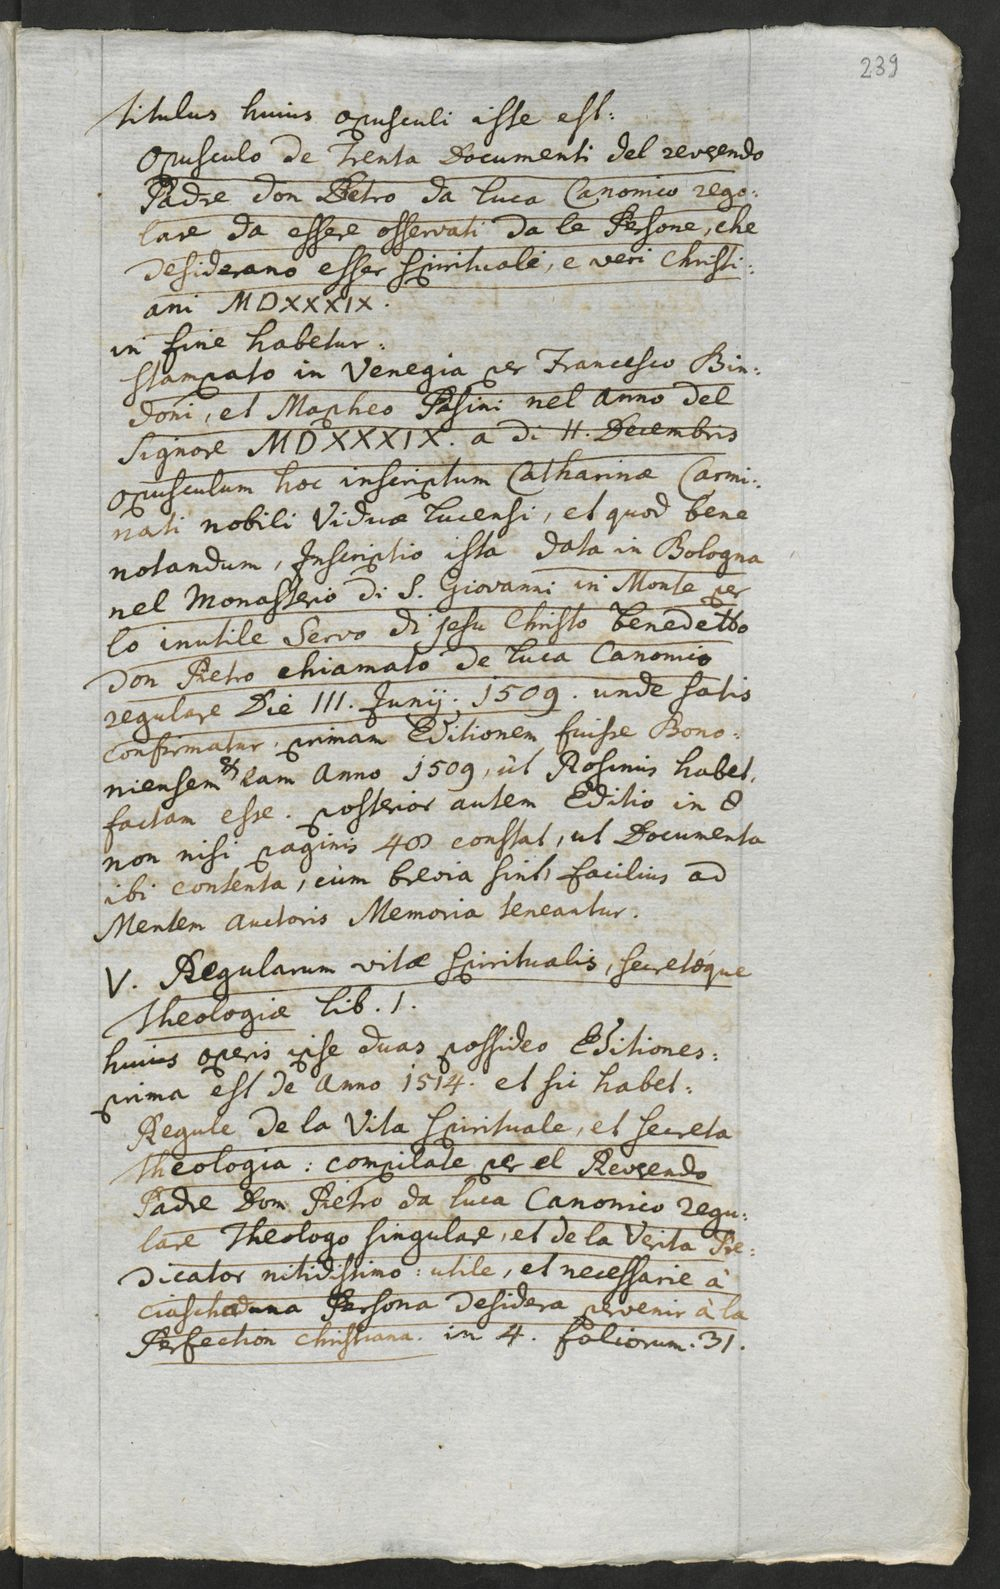 239
titulus huius opusculi iste est:
Opusculo de Trenta Documenti del revendo
Padre don Pietro da Luca Canonico rego:
lare da essere osservati da le Persone, che
desiderano esser spirituali, e veri Christi:
ani MDXXXIX.
in fine habetur:
stampato in Venegia per Francesco Bin:
doni, et Mapheo Pasini nel Anno del
Signore MDXXXIX. a di 11. Decembris
opusculum hoc inscriptum Catharinæ Carmi:
nati nobili Viduæ Lucensi, et quod bene
notandum, Inscriptio ista data in Bologna
nel Monasterio di S. Giovanni in Monte per
lo inutile Servo di Jesu Christo benedetto
don Pietro chiamato de Luca Canonico
regulare Die III. Junij. 1509. unde satis
confirmatur, primam Editionem fuisse Bono:
niensem & eam Anno 1509, ut Rosinus habet,
factam esse. posterior autem Editio in 8
non nisi paginis 48 constat, ut Documenta
ibi contenta, cum brevia sint, facilius ad
Mentem auctoris Memoria teneantur.
V. Regularum vitæ spiritualis, secretæque
Theologiæ Lib. 1.
huius operis ipse duas possideo Editiones:
prima est de Anno 1514. et sic habet:
Regule de la Vita spirituale, et secreta
theologia: compilate per el Revendo
Padre Dom Pietro da luca Canonico regu:
lare Theologo singulare, et de la Verita Pre:
dicator nitidissimo: utile, et necessarie à
ciaschaduna Persona desidera pervenir à la
Perfection christiana. in 4. foliorum. 31.